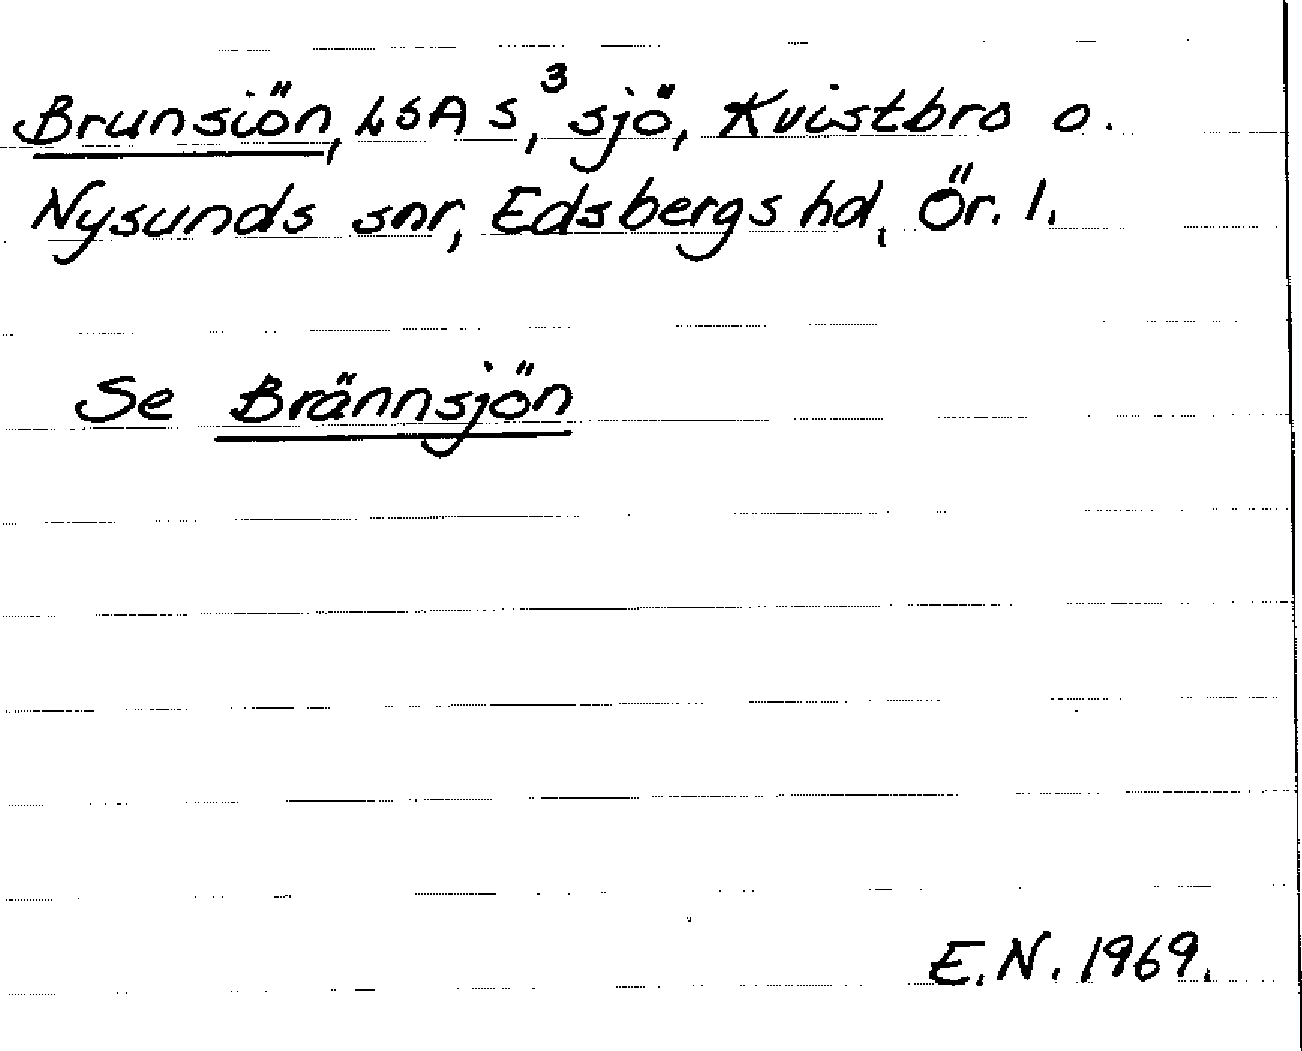 Brunsiön, LSA S, ³ sjö, Kvistbro o.
Nysunds snr, Edsbergs hd, Ör. l.
Se Brännsjön
E.N. 1969.